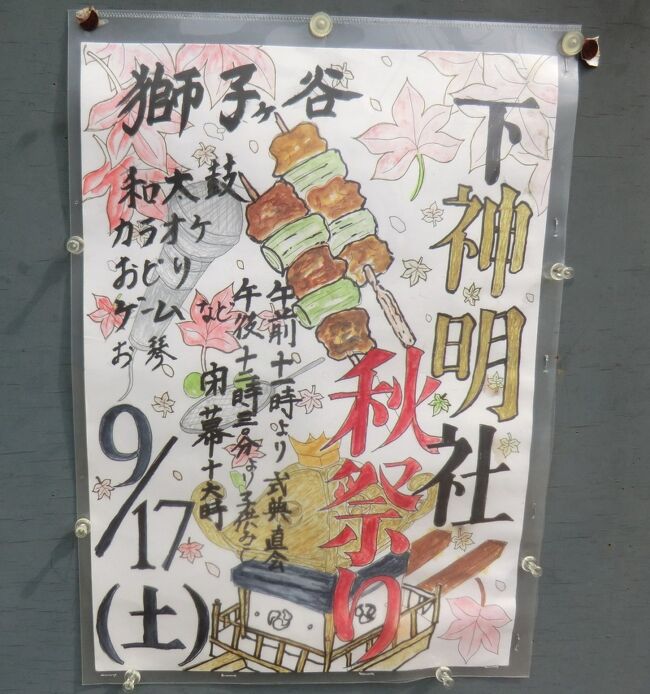 獅子ヶ谷
下神明社
秋祭り
午前十一時より 式典 直会
午後十二時三〇分より 子供みこし
閉幕十六時
和太鼓
カラオケ
おどり
ゲーム
お琴
など
9/17(土)